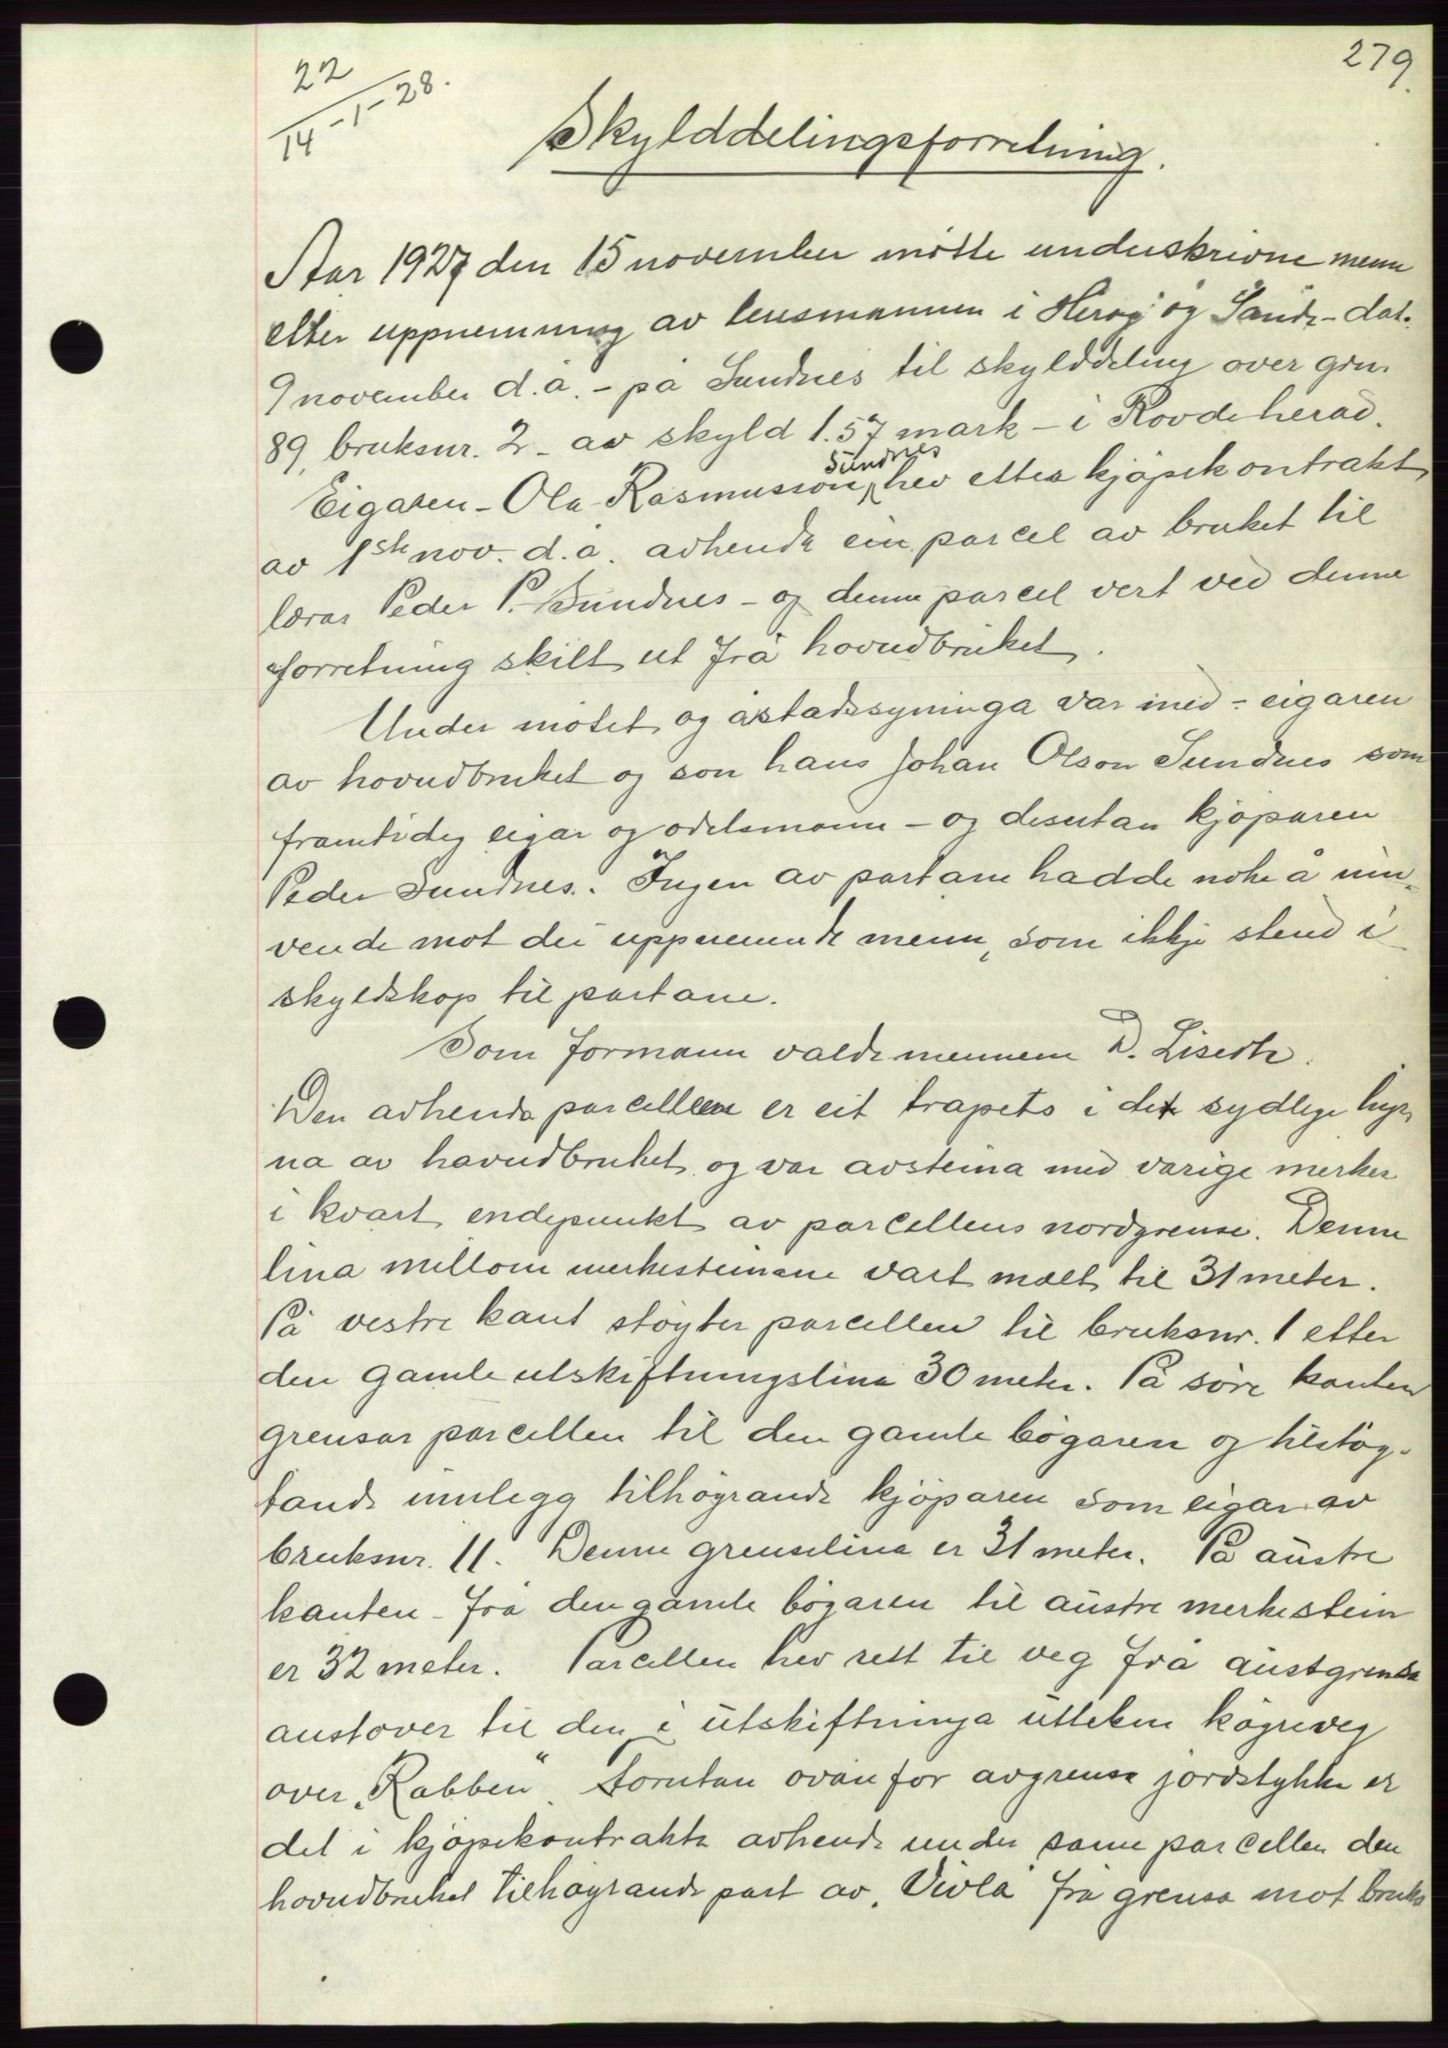 279.
22
14-1-28.
Skylddelingsforretning.
Aar 1927 den 15 november møtte underskrivne menn
etter uppnemning av lensmannen i Herøy og Sande - dat.
9 november d.å. - på Sundnes til skylddeling over grn.
89, bruksnr. 2 - av skyld 1.57 mark - i Rovde herad.
Sundnes
Eigaren - Ola Rasmusson hev etter kjøpekontrakt
av 1ste nov. d.å. avhenda ein parcel av bruket til
lærar Peder P. Sundnes - og denne parcel vert ved denne
forretning skilt ut frå hovudbruket.
Under møtet og åstadssyninga var med - eigaren
av hovudbruket og son hans Johan Olson Sundnes som
framtidig eigar og odelsmann - og desutan kjøparen
Peder Sundnes. Ingen av partane hadde noke å inn-
vende mot dei uppnemnde menn, som ikkje stend i
skyldskap til partane.
Som formann valde mennene D. Liseth.
Den avhenda parcellen er eit trapets i det sydlige hyr-
na av hovudbruket og var avsteina med varige merker
i kvart endepunkt av parcellens nordgrense. Denne
lina millom merkesteinane vart mælt til 31 meter.
På vestre kant støyter parcellen til bruksnr. 1 etter
den gamle utskiftningslina 30 meter. På søre kanten
grensar parcellen til den gamle bøgaren og tilstøy-
tande innlegg tilhøyrande kjøparen som eigar av
bruksnr. 11. Denne grenselina er 31 meter. På austre
kanten - frå den gamle bøgaren til austre merkestein
er 32 meter. Parcellen hev rett til veg frå austgrensa
austover til den i utskiftninga uttekne køyreveg
over "Rabben". Forutan ovanfor avgrensa jordstykke er
det i kjøpekontrakta avhenda under same parcellen den
hovudbruket tilhøyrande part av "Vivla" frå grensa mot bruks